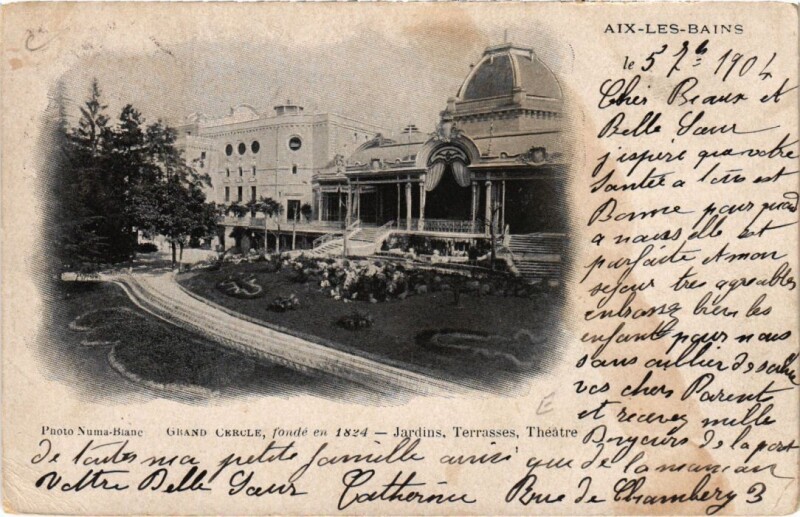 AIX-LES-BAINS
le 5 7bre 1904
Cher Beaux et
Belle Sœur
j'espère que votre
Santée a tous est
Bonne pour quand
a nous elle est
parfaite et mon
séjour tres agreables
enbrassez bien les
enfants pour nous
sans oublier de saluer
vos chers Parents
et recevez mille
Photo Numa-Blanc GRAND CERCLE, fondé en 1824 — Jardins, Terrasses, Théâtre
Bonjours de la part
de toutes ma petite famille ainsi que de la maman
Vottre Belle Sœur Catherine Rue de Chambery 3